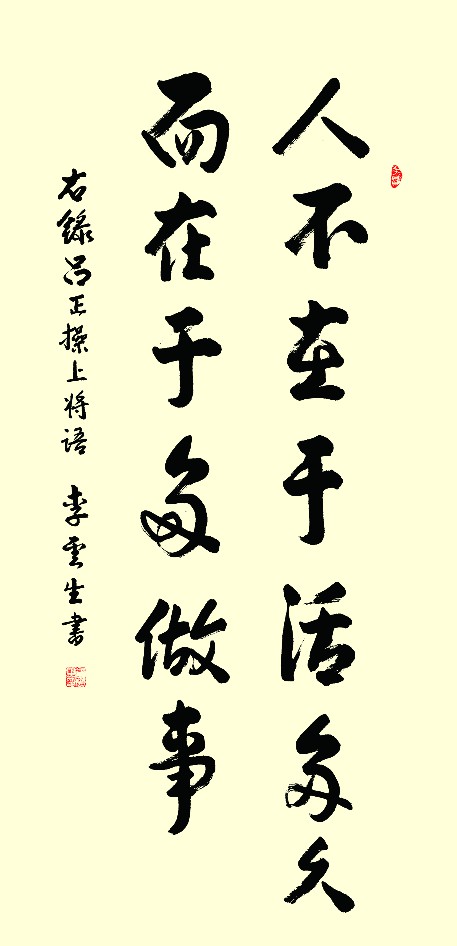 人不在于活多久
而在于多做事
右錄吕正操上将語 李雲生書